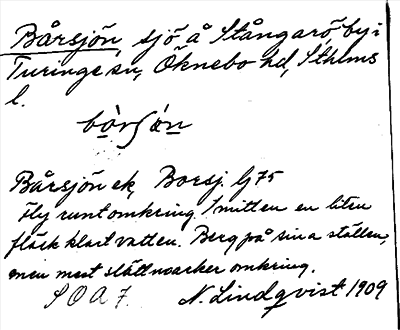 Bårsjön, sjö å Stångarö by i
Turinge sn, Öknebo hd, Sthlms
l.
bórʃön
Bårsjön ek, Borsj. lj 75
Fly runt omkring. I mitten en liten
fläck klart vatten. Berg på sina ställen,
men mest slättmarker omkring.
SOA 7. N. Lindqvist 1909